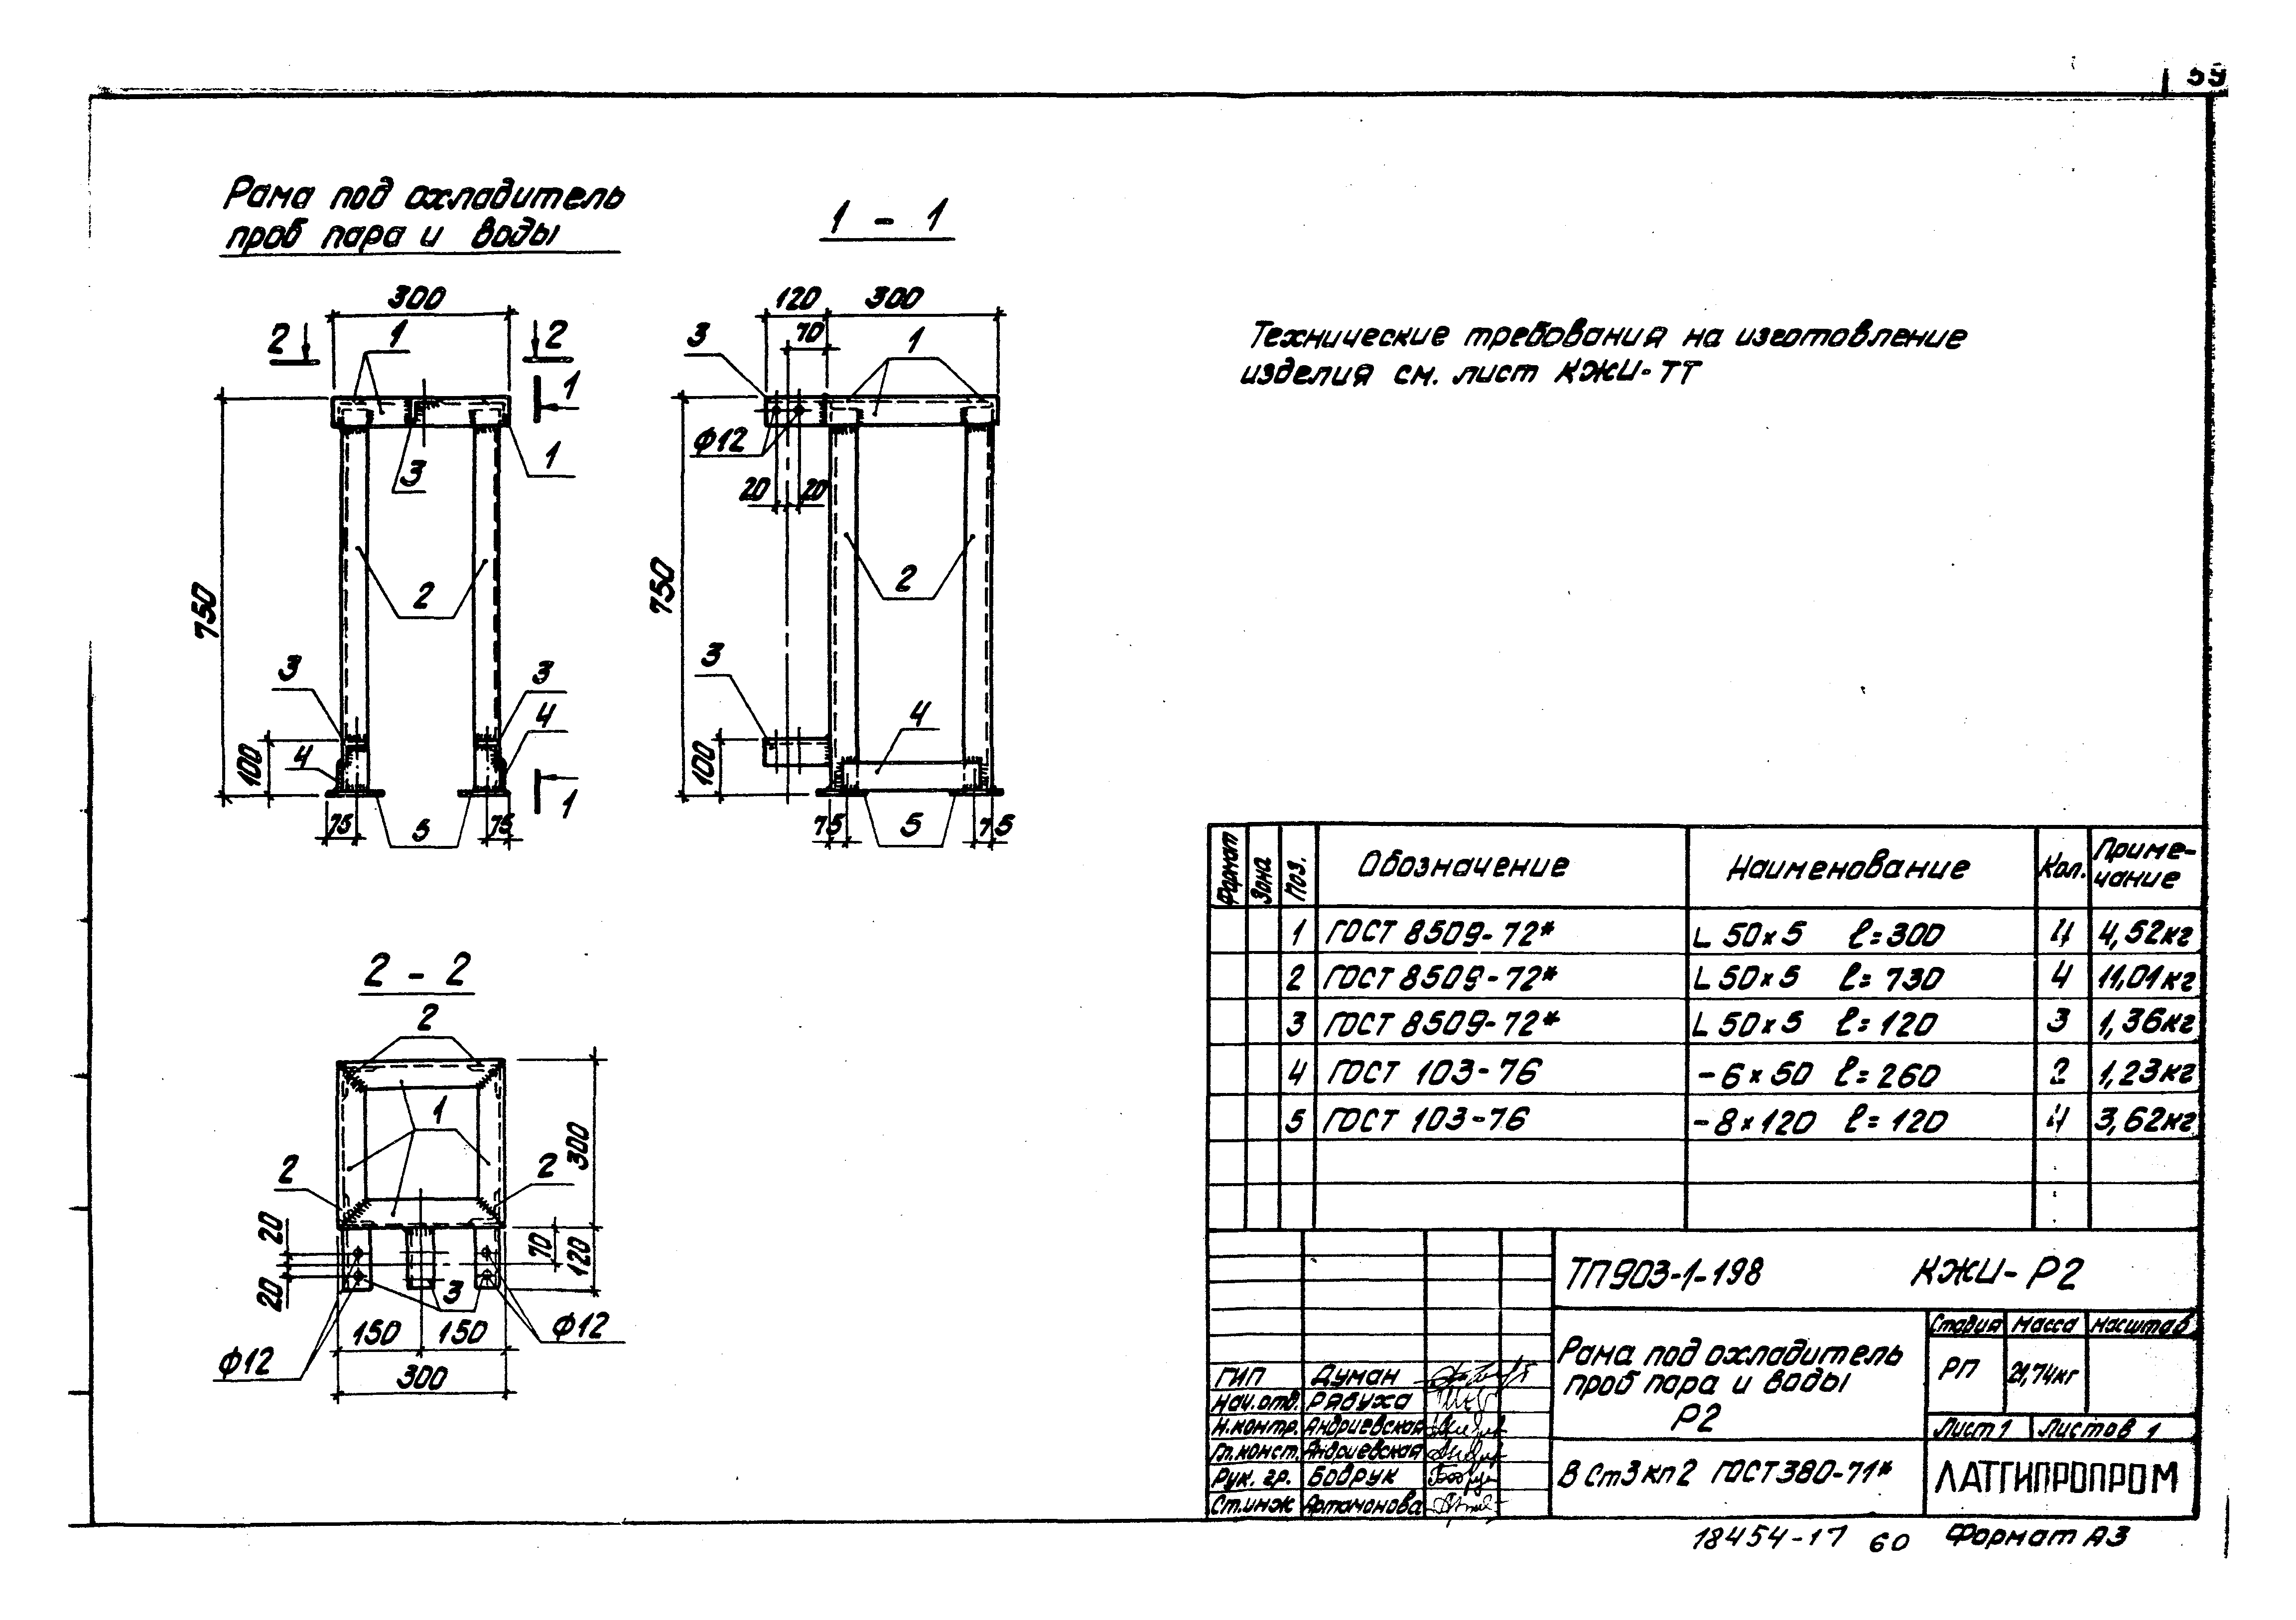 59
Рама под охладитель
проб пара и воды
300
2 1 2
1
1
3
750
2
3 3
4
100 4
1
75 5 75
1 - 1
120 300
3 70 1
Ф12
20 20
750
2
3
4
100
75 5 75
2 - 2
2
1
2 2
300
20
20
70 120
3
150 150
Ф12
Ф12
300
Технические требования на изготовление
изделия см. лист КЖИ-ТТ
Формат Зона Поз. Обозначение Наименование Кол. Приме-
чание
1 ГОСТ 8509-72* L 50×5 ℓ=300 4 4,52кг
2 ГОСТ 8509-72* L 50×5 ℓ=730 4 11,01кг
3 ГОСТ 8509-72* L 50×5 ℓ=120 3 1,36кг
4 ГОСТ 103-76 -6×50 ℓ=260 2 1,23кг
5 ГОСТ 103-76 -8×120 ℓ=120 4 3,62кг
ТП903-1-198 КЖИ-Р2
Рама под охладитель
проб пара и воды
Р2
Стадия Масса Масштаб
РП 21,74кг
Лист 1 Листов 1
ГИП Думан
Нач.отд. Рябуха
Н.контр. Андриевская
Гл.конст. Андриевская
Рук. гр. Бодрук
Ст.инж Артамонова
ВСт3кп2 ГОСТ380-71*
ЛАТГИПРОПРОМ
18454-17 60 Формат А3